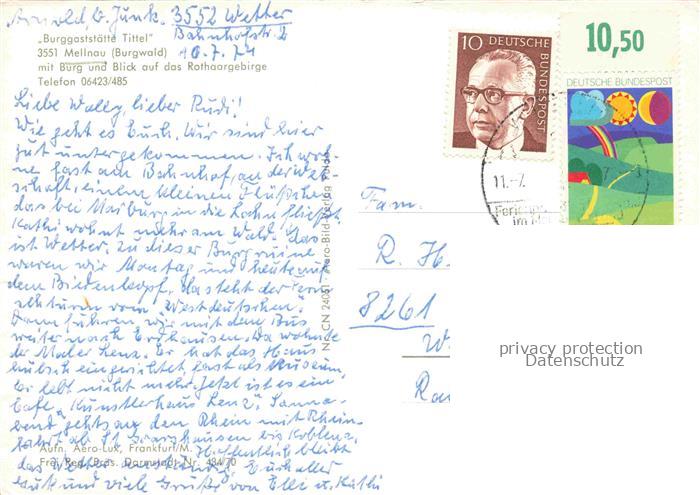 Arnold b. Junk. 3552 Wetter
Bahnhofstr. 2
„Burggaststätte Tittel"
3551 Mellnau (Burgwald)
10.7.74
mit Burg und Blick auf das Rothaargebirge
Telefon 06423/485
Liebe Wally, lieber Rudi!
Wie geht es Euch. Wir sind hier
gut untergekommen. Ich woh-
ne fast am Bahnhof, an der Wet-
schaft, einem kleinen Flüßchen
das bei Marburg in die Lahn fließt.
Kathi wohnt mehr am Wald. Das
ist Wetter. Zu dieser Burgruine
waren wir Montag und heute auf
dem Biedenkopf. Da steht der
vom „Westdeutschen".
Dann fuhren wir mit dem Bus
weiter nach Erdhausen. Da wohnte
der Maler Lenz. Er hat das Haus
hübsch eingerichtet, fast als Museum.
Er lebt nicht mehr. Jetzt ist es ein
Cafe „Künstlerhaus Lenz". Sonna-
bend gehts an den Rhein mit Rhein-
fahrt ab St. Goarshausen bis Koblenz.
Aufn. Aero-Lux, Frankfurt/M.
Hoffentlich bleibt
Frg. Reg. Präs. Darmstadt Nr. 484/70
das Wetter Euch allen
und viele Grüße von Elli u. Kathi
Nr. CN 2405 Aero-Bild-Verlag
10 DEUTSCHE BUNDESPOST
10,50
DEUTSCHE BUNDESPOST
11.-7.
Fam.
R. H.
8261
W.
privacy protection
Datenschutz